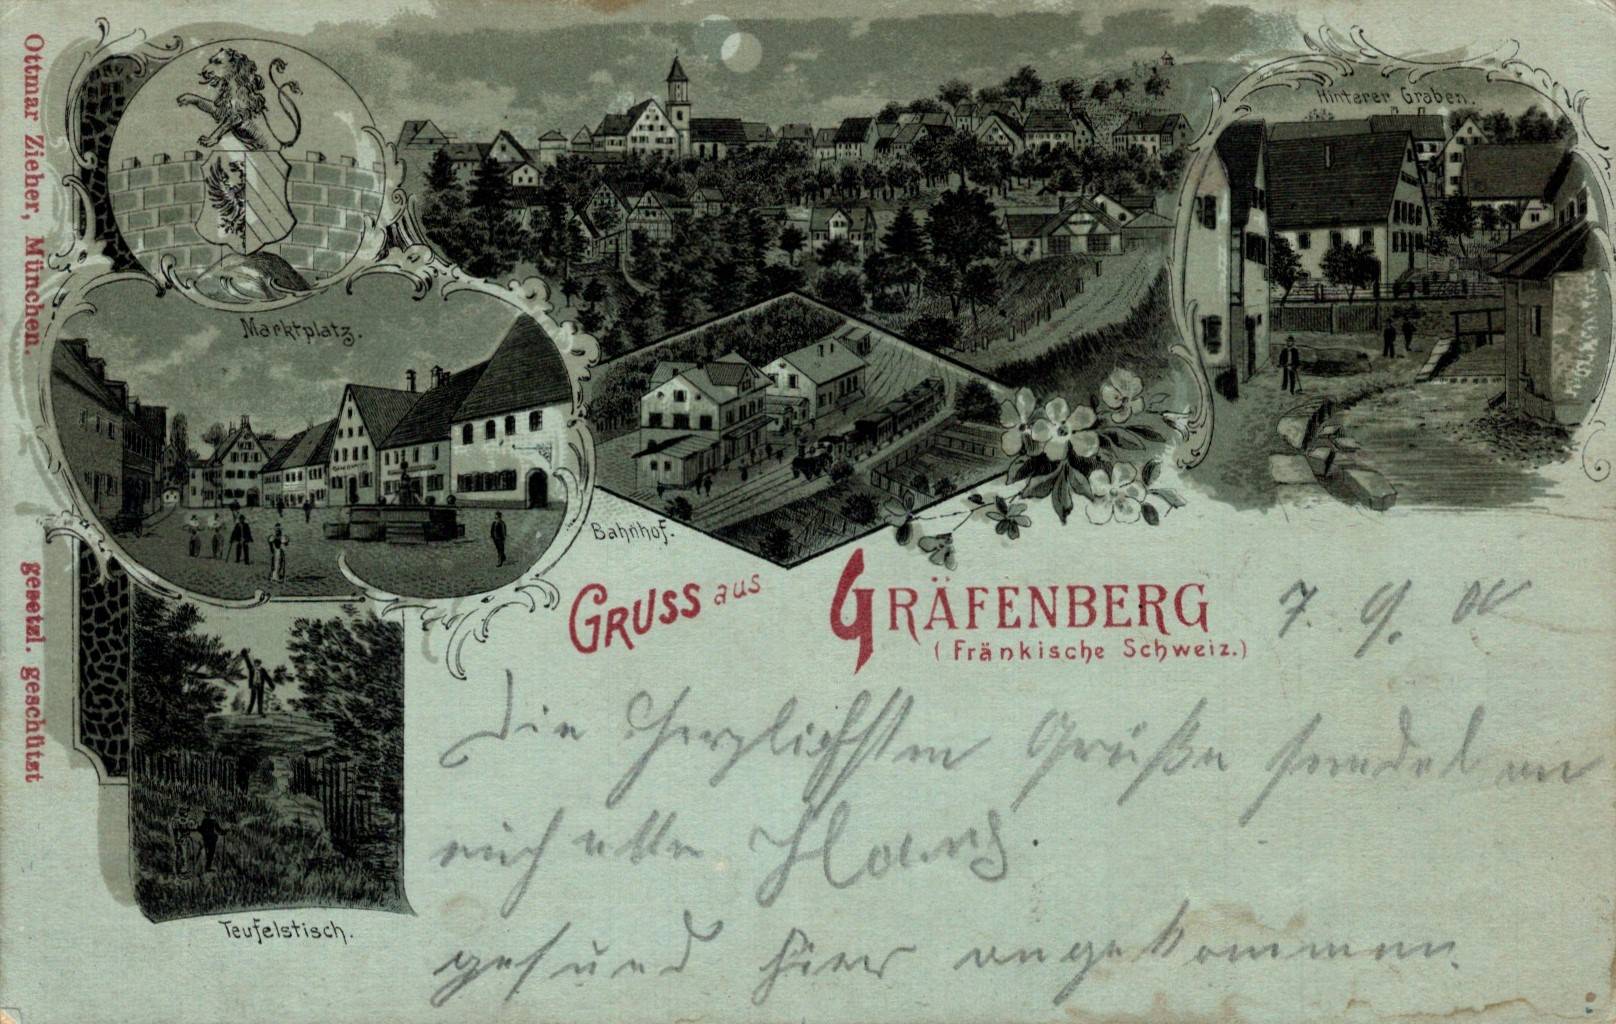 Ottmar Zieher, München.
gesetzl. geschützt
Marktplatz.
Hinterer Graben.
Bahnhof.
Teufelstisch.
GRUSS aus GRÄFENBERG
(Fränkische Schweiz.)
7. 9. 00
Die herzlichsten Grüße sendet an
euch alle Hans.
gesund hier angekommen.